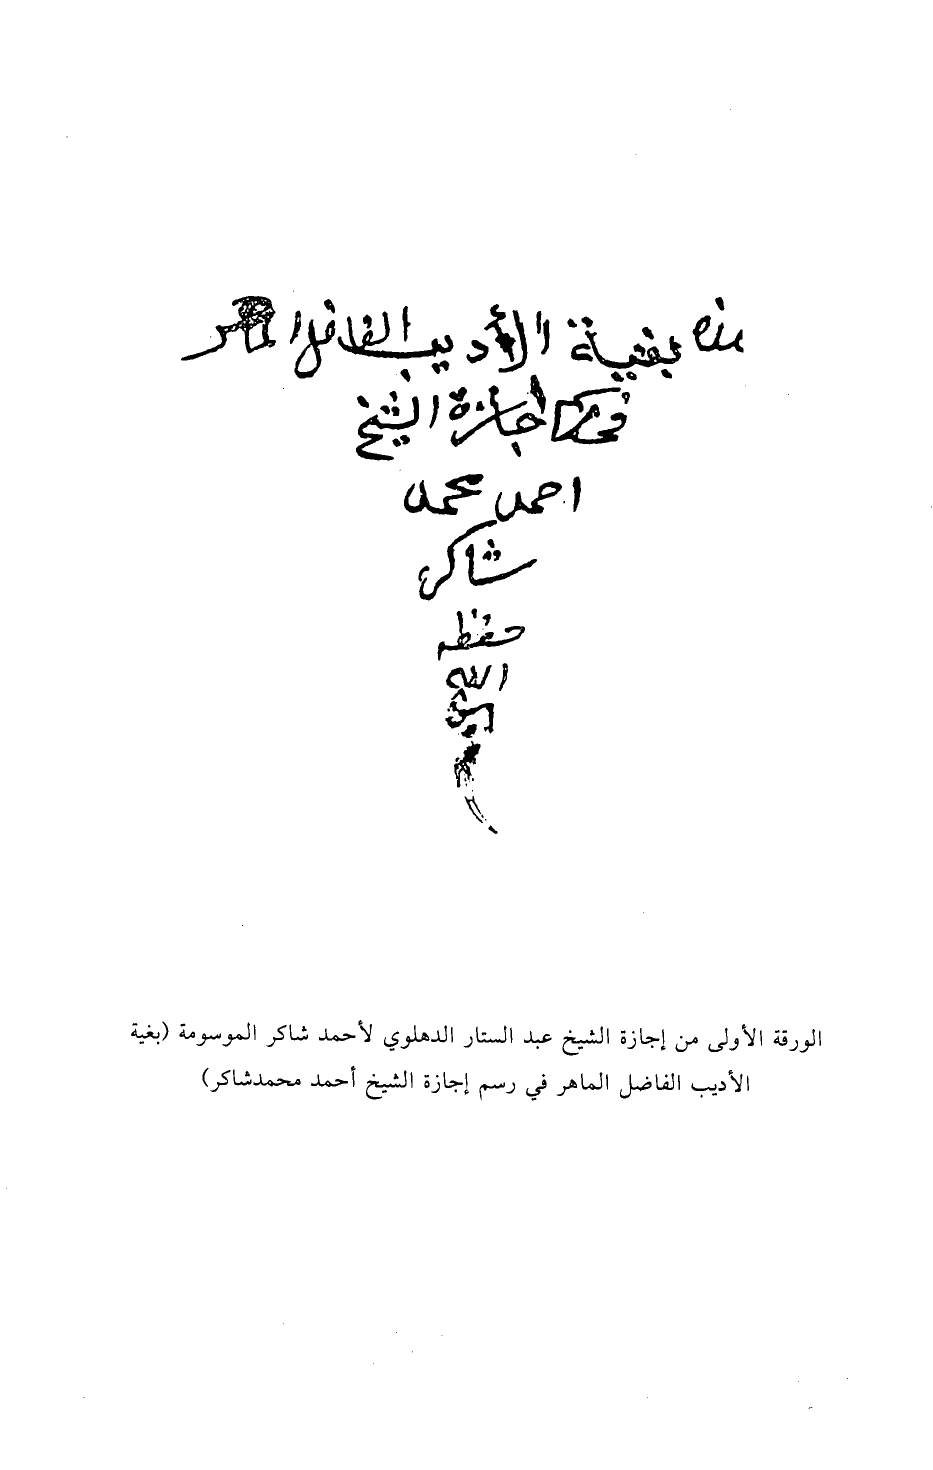 هذه بغية الأديب الفاضل الماهر
في رسم إجازة الشيخ
احمد محمد
شاكر
حفظه
الله
الورقة الأولى من إجازة الشيخ عبد الستار الدهلوي لأحمد شاكر الموسومة (بغية
الأديب الفاضل الماهر في رسم إجازة الشيخ أحمد محمدشاكر)